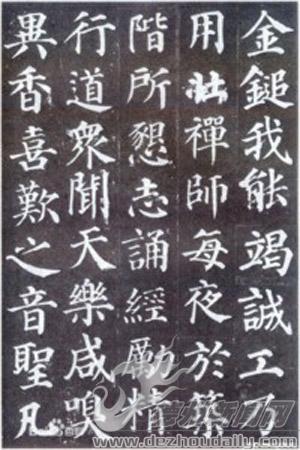 金鎚我能竭誠工乃
用壯禪師每夜於築
階所懇志誦經勵精
行道衆聞天樂咸嗅
異香喜歎之音聖凡
www.dezhoudaily.com